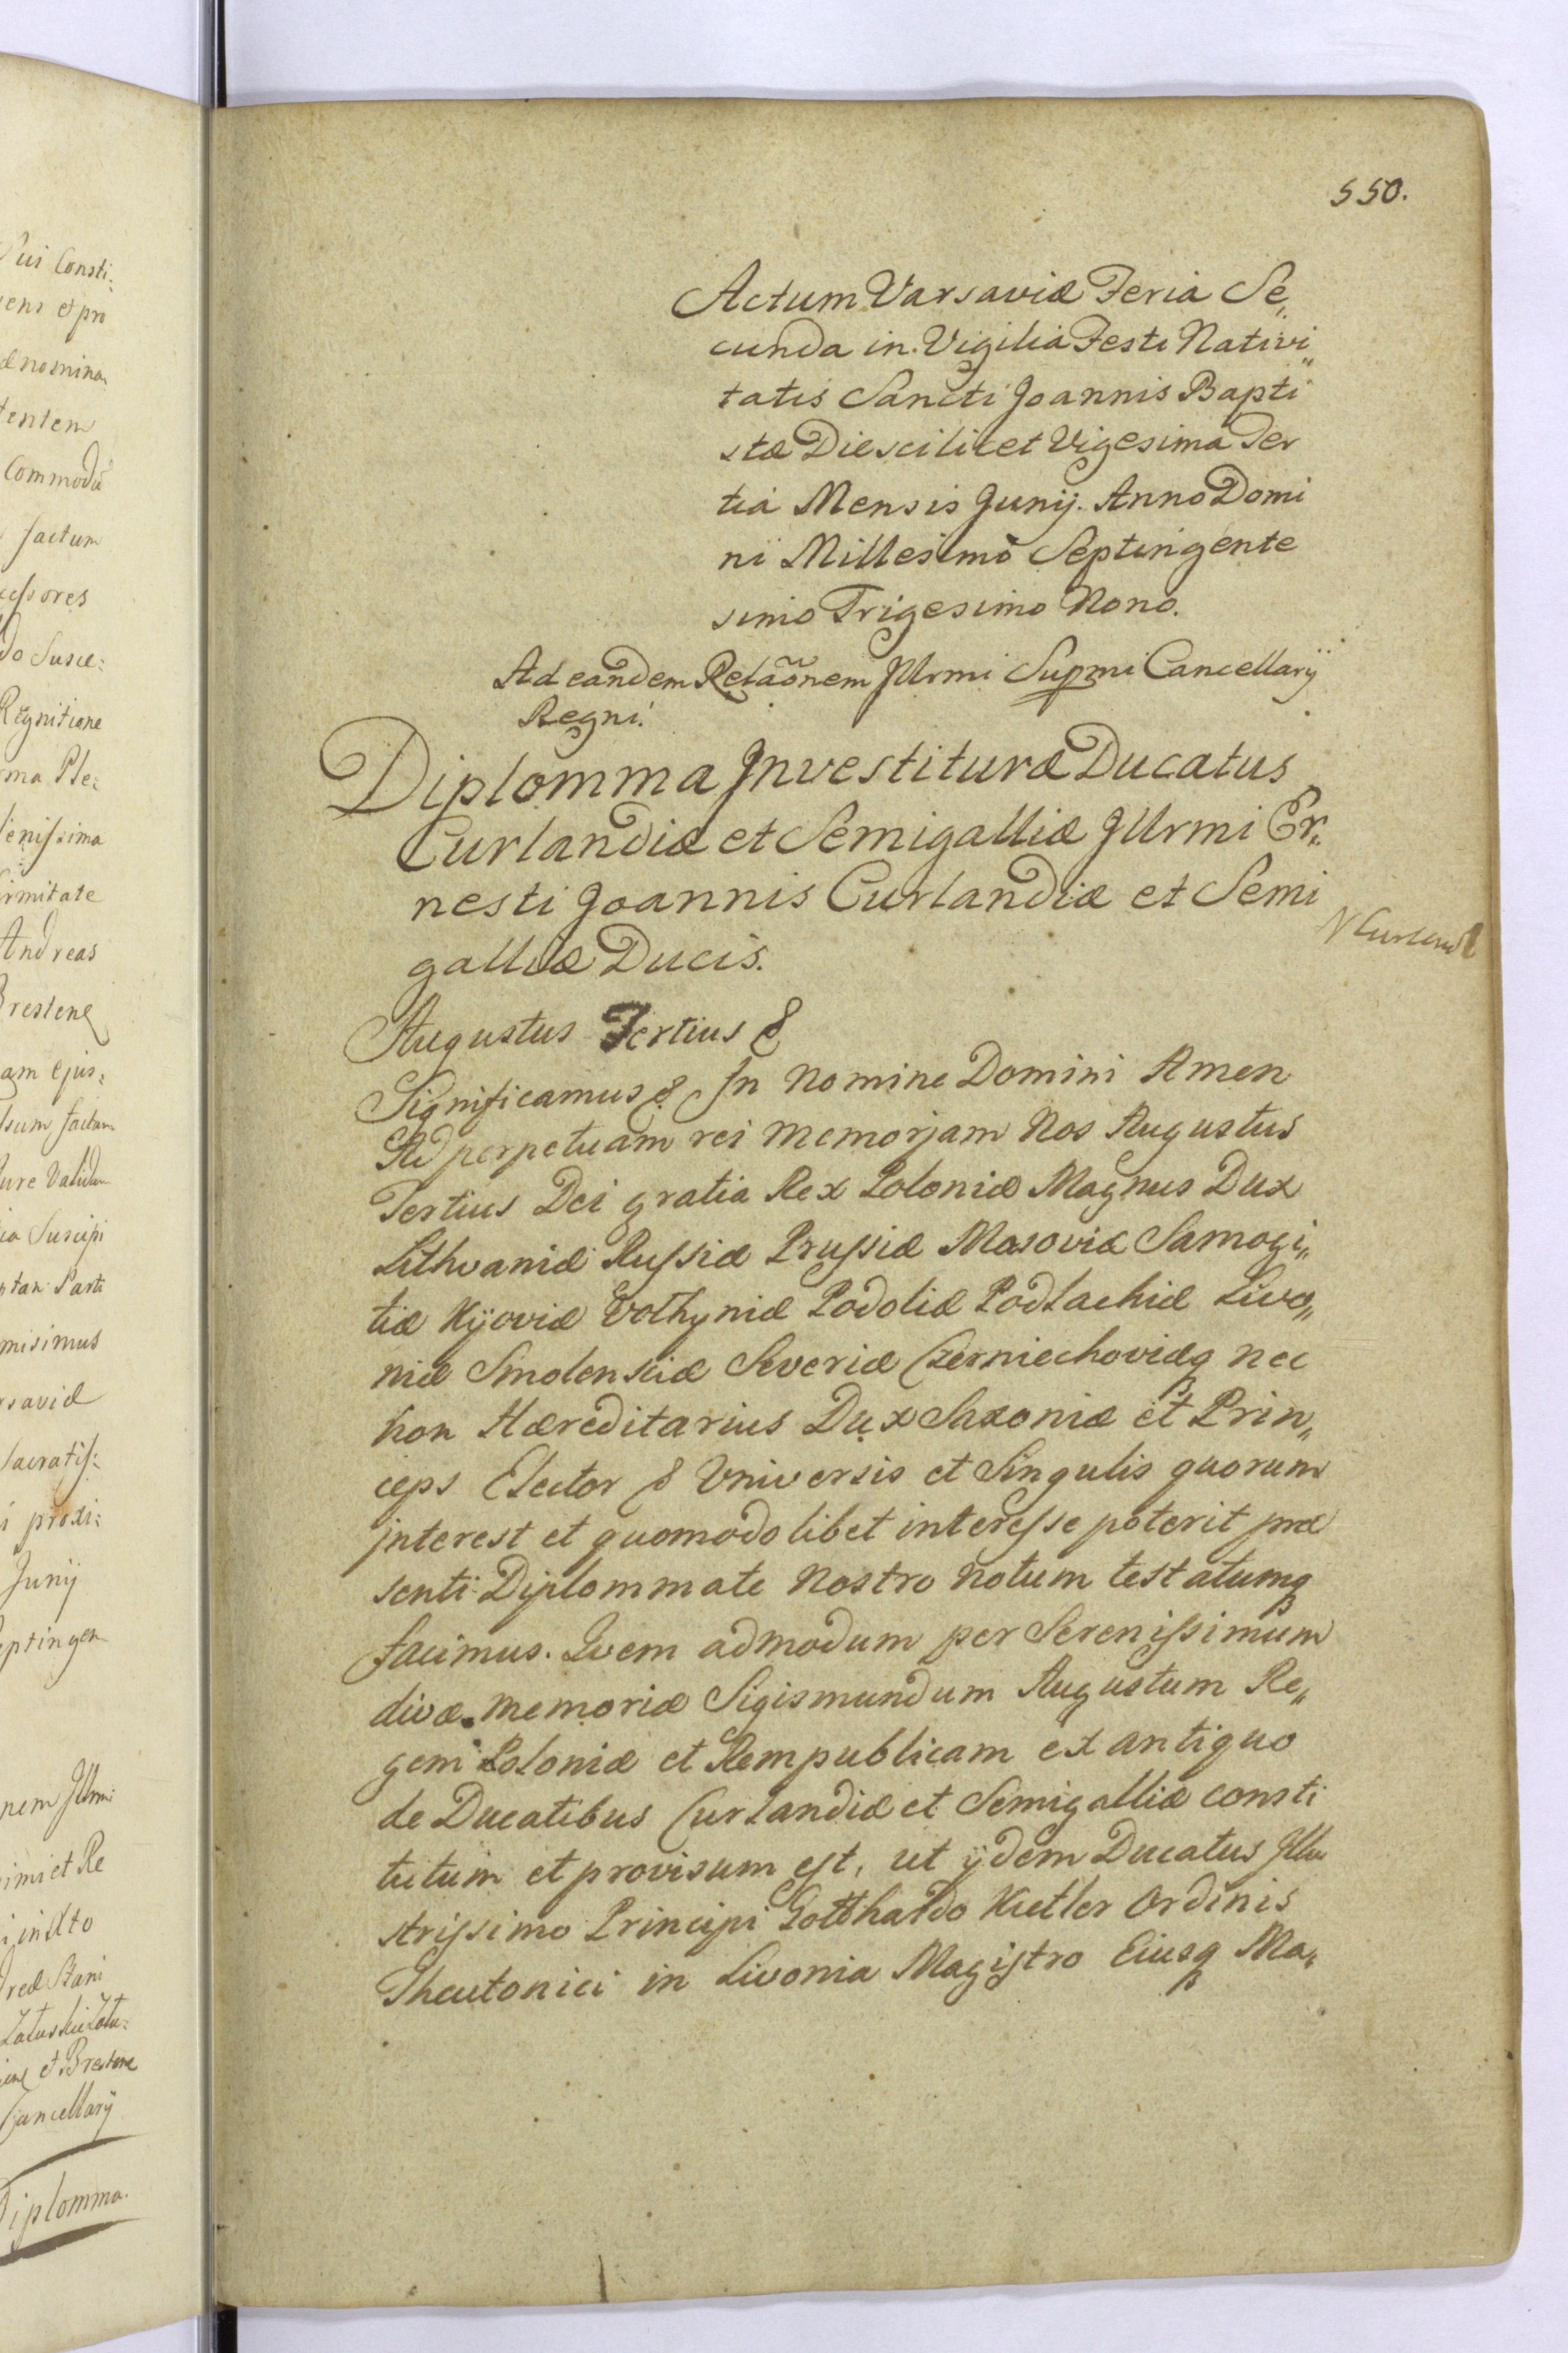 550.
Actum Varsaviæ Feria Se„
cunda in Vigilia Festi Nativi„
tatis Sancti Joannis Bapti
stæ Die scilicet Vigesima Ter
tia Mensis Junij. Anno Domi
ni Millesimo Septingente
simo Trigesimo Nono.
Ad eandem Relaõnem Jllrmi Supmi Cancellarij
Regni.
Diplomma Jnvestituræ Ducatus
Curlandiæ et Semigalliæ Jllrmi Er„
nesti Joannis Curlandiæ et Semi
galliæ Ducis.
Augustus Tertius &
Significamus & In Nomine Domini Amen
Ad perpetuam rei memorjam Nos Augustus
Tertius Dei gratia Rex Poloniæ Magnus Dux
Lithvaniæ Russiæ Prussiæ Masoviæ Samogi„
tiæ Kijoviæ Volhyniæ Podoliæ Podlachiæ Livo„
niæ Smolensciæ Severiæ Czerniechoviæq nec
non Hæreditarius Dux Saxoniæ et Prin„
ceps Elector & Vniversis et Singulis quorum
jnterest et quomodolibet interesse poterit præ
senti Diplommate Nostro notum testatumq
facimus. Qvem admodum per Serenissimum
divæ memoriæ Sigismundum Augustum Re„
gem Poloniæ et Rempublicam ex antiquo
de Ducatibus Curlandiæ et Semigalliæ consti
tutum et provisum est, ut ijdem Ducatus Jllu
strissimo Principi Gotthardo Kietler Ordinis
Theutonici in Livonia Magistro Eiusq Ma„
Sui Consti:
commodũ
factum
cessores
do Susce:
ma Ple:
Andreas
am ejus:
misimus
Junij
Cancellarij
Diplomma.